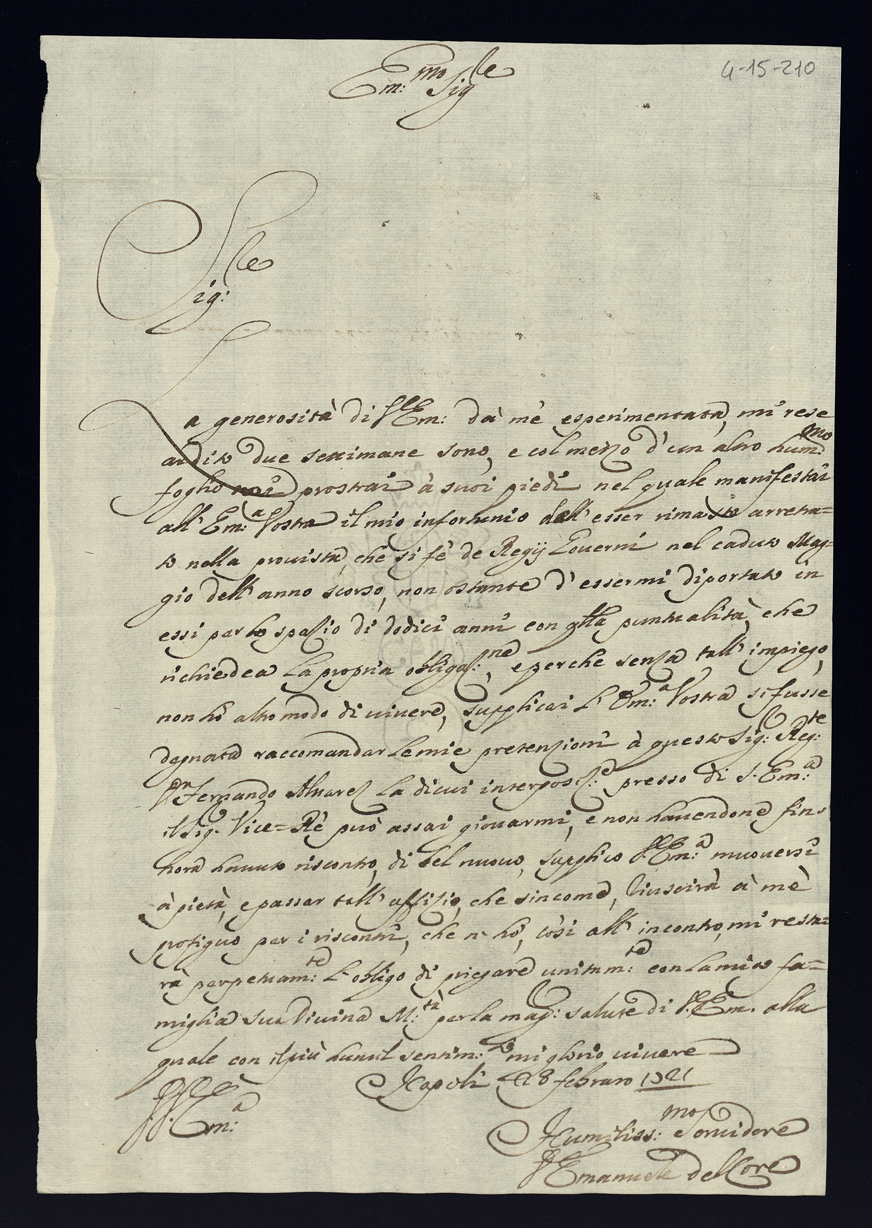 4-15-210
Em:mo Sig.re
Sig:re
La generosità di V. Em: da mè esperimentata, mi rese
ardito due settimane sono, e col mezo d'un altro hum:mo
foglio prostrai à suoi piedi nel quale manifestai
all'Em:a Vostra il mio infortunio dell'esser rimasto arreta=
to nella provista, che si fè de Regij Governi nel caduto Mag=
gio dell'anno scorso, non ostante d'essermi diportato in
essi per lo spazio di dodici anni con q.lla puntualità, che
richiedea la propria obligaz:ne, e perche senza tall'impiego,
non hò altro modo di vivere, supplicai l'Em:a Vostra si fusse
degnata raccomandar le mie pretenzioni à questo Sig:r Reg:te
D. Fernando Alvarez la di cui interposiz:e presso di S. Em:a
il Sig.r Vice=Rè può assai giovarmi, e non havendone fin'
hora havuto riscontro, di bel nuovo, supplico V. Em:a muoversi
à pietà, e passar tall'uffizio, che sincome, riuscirà à mè
proficuo per i riscontri, che n'hò, così all'incontro, mi resta=
rà perpetuam:te l'obligo di priegare unitam:te con la mia fa=
miglia sua Divina M:tà per la mag: salute di V. Em. alla
quale con il più humil sentim:to mi glorio vivere
Napoli 28 febraro 1721
Em:a
Humiliss:mo Servidore
Emanuele del Core